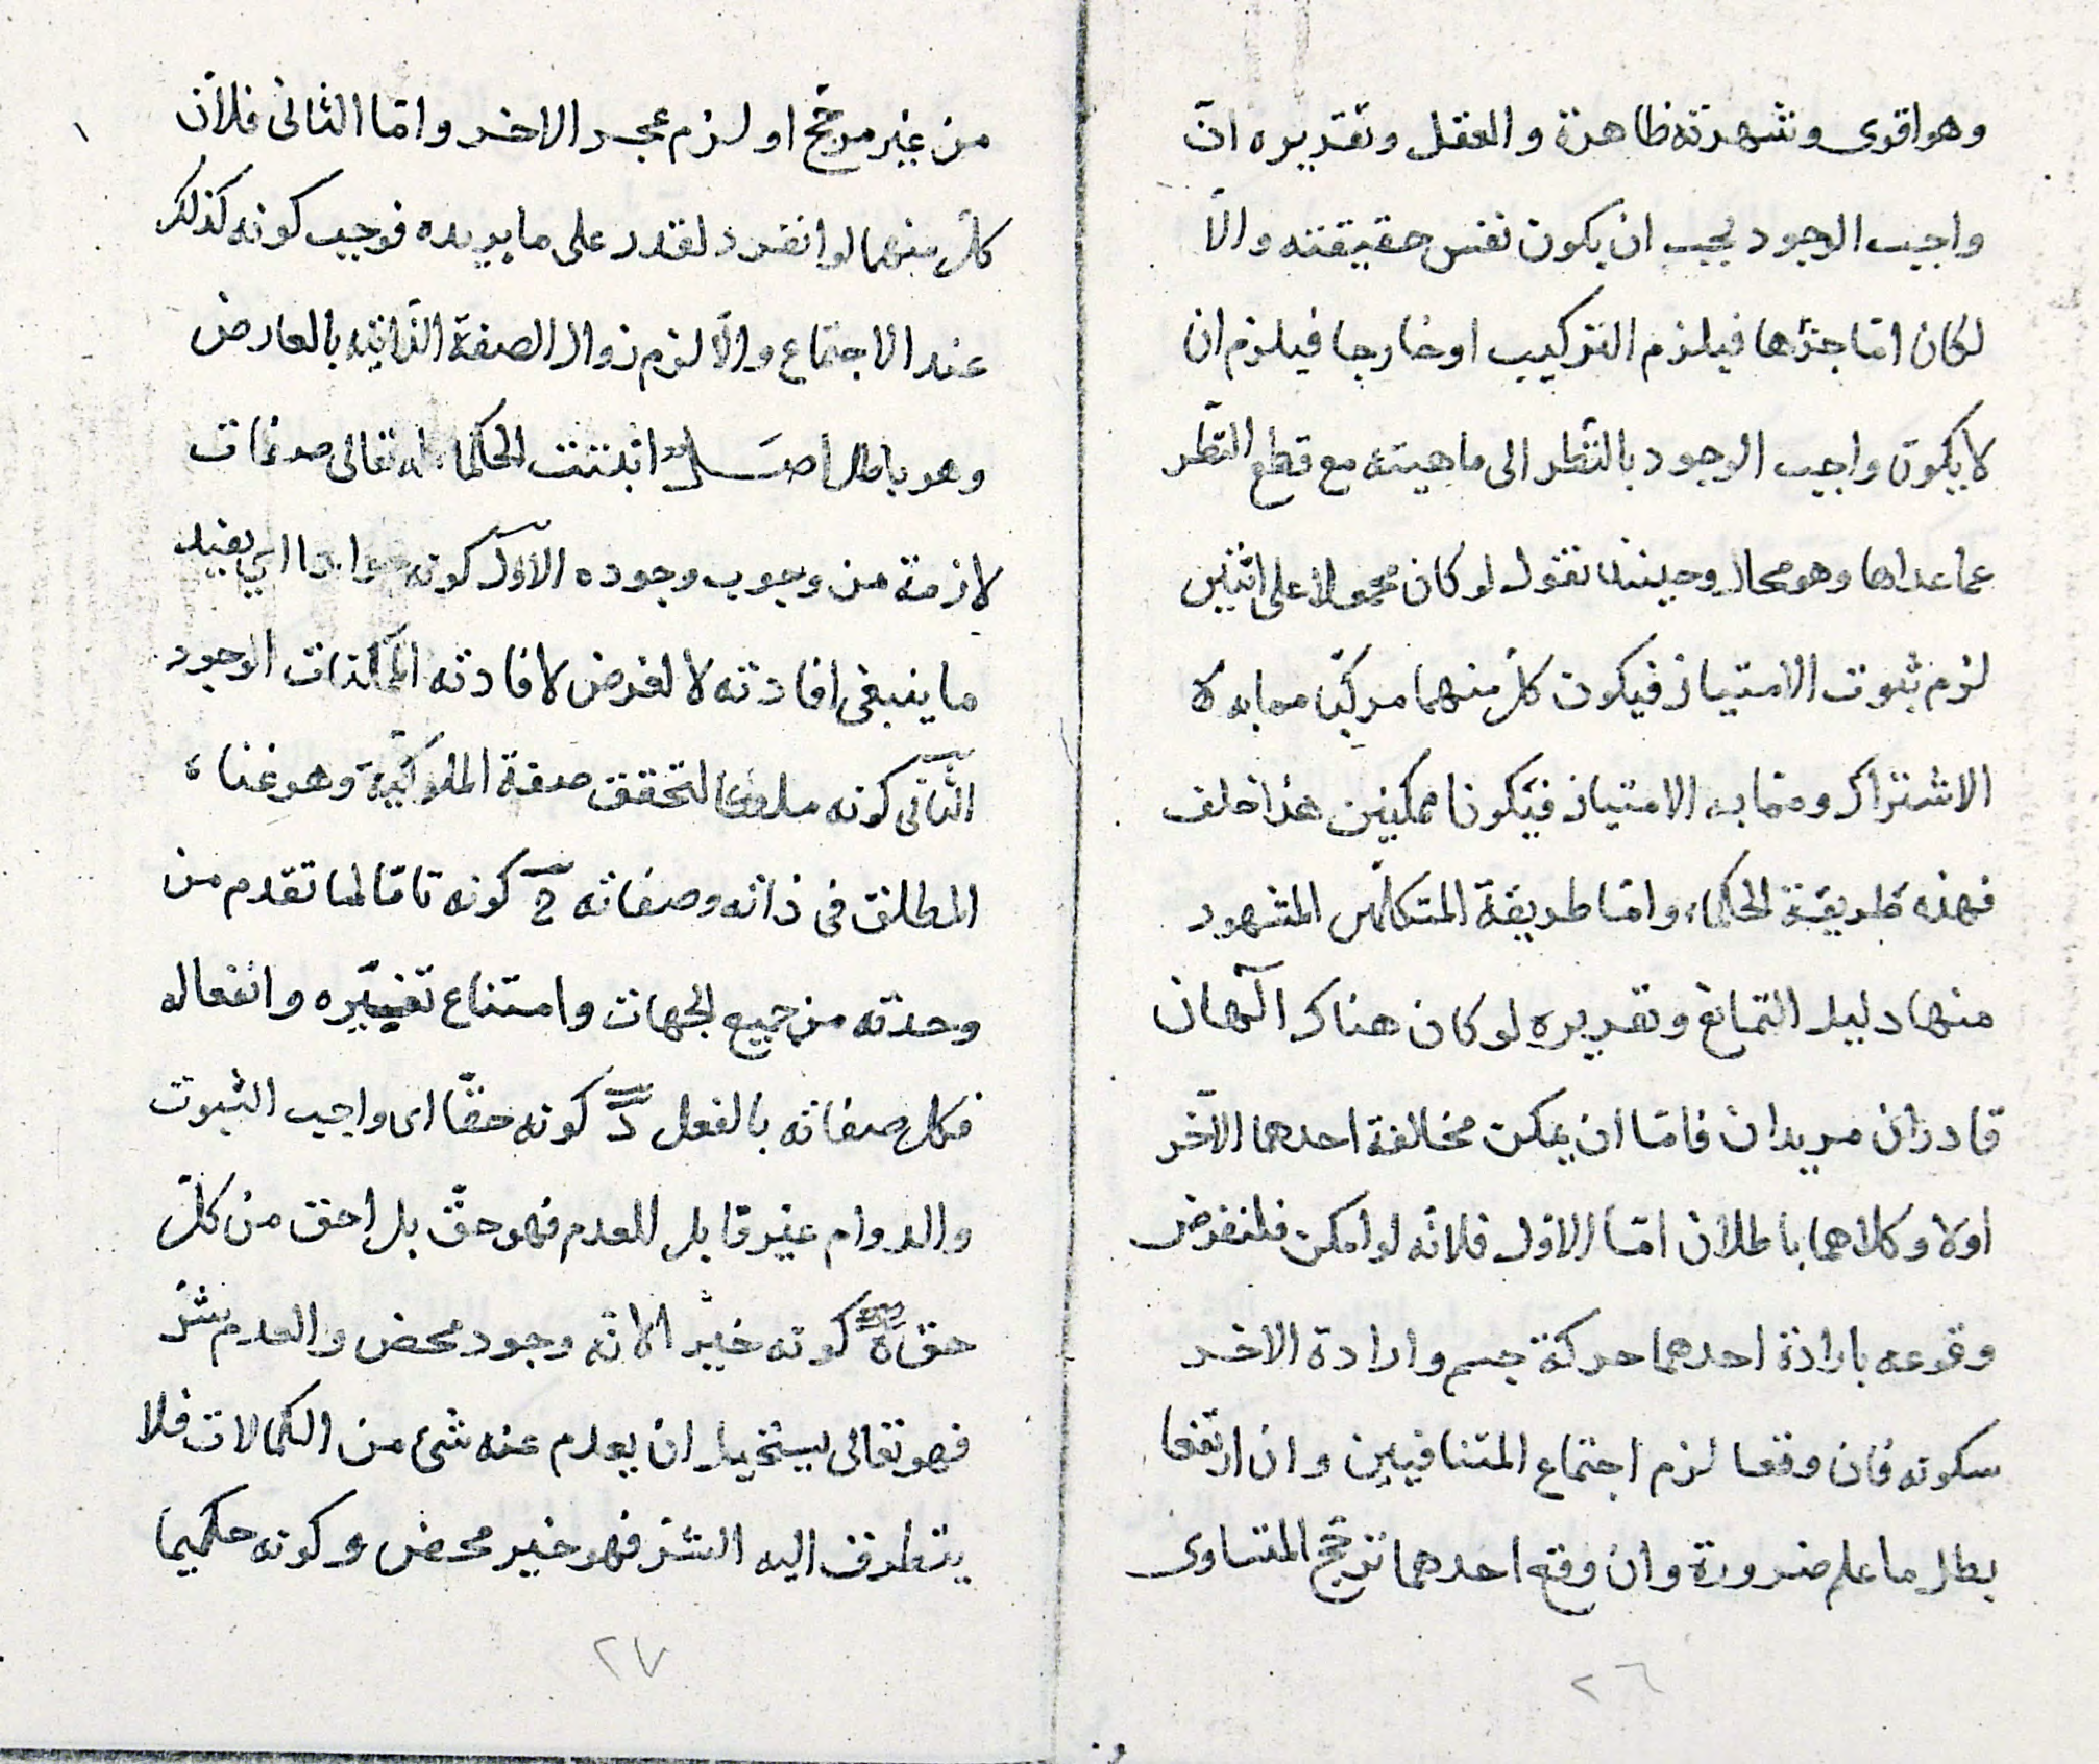 وهو اقوى وشهرته ظاهرة والعقل وتقديره انّ
واجب الوجود يجب ان يكون نفس حقيقته والاّ
لكان امّا جزءها فيلزم التركيب او خارجا فيلزم ان
لا يكون واجب الوجود بالنّظر الى ماهيته مع قطع النّظر
عما عداها وهو محال وحينئذ نقول لو كان محمولا على اثنين
لزم ثبوت الامتياز فيكون كل منهما مركبّا مما به
الاشتراك وممّا به الامتياز فيكونا ممكنين هذا خلف
فهذه طريقة الحكماء وامّا طريقة المتكلّمين المشهور
منها دليل التمانع وتقريره لو كان هناك آلهان
قادران مريدان فامّا ان يمكن مخالفة احدهما الآخر
اولا وكلاهما باطلان امّا الاوّل فلانّه لو امكن فلنفرض
وقوعه بارادة احدهما حركة جسم وارادة الاخر
سكونه فان وقعا لزم اجتماع المتنافيين وان ارتفعا
بطل ما علم ضرورة وان وقع احدهما ترجّح المتساوى
٢٦
من غير مرجّح او لزم عجر الاخر وامّا الثانى فلانّ
كلّ منهما لو انفرد لقدر على ما يريده فوجب كونه كذلك
عند الاجتماع والاّ لزم زوال الصفة الذّاتيّه بالعارض
وهو باطل اصل اثبتت الحكماء له تعالى صفات
لازمة من وجوب وجوده الاوّل كونه جوادا اي يفيد
ما ينبغى افادته لا لغرض لافادته الممكنات الوجود
الثّانى كونه ملكا لتحقق صفة الملوكيّة وهو غناء
المطلق فى ذاته وصفاته ج كونه تامّا لما تقدم من
وحدته من جميع الجهات وامتناع تغيّره وانفعاله
فكل صفاته بالفعل د كونه حقّا اى واجب الثبوت
والدوام غير قابل للعدم فهو حقّ بل احق من كلّ
حق ه كونه خيرا لانه وجود محض والعدم شرّ
فهو تعالى يستحيل ان يعدم عنه شئ من الكمالات فلا
يتطرف اليه الشرّ فهو خير محض و كونه حكيما
٢٧